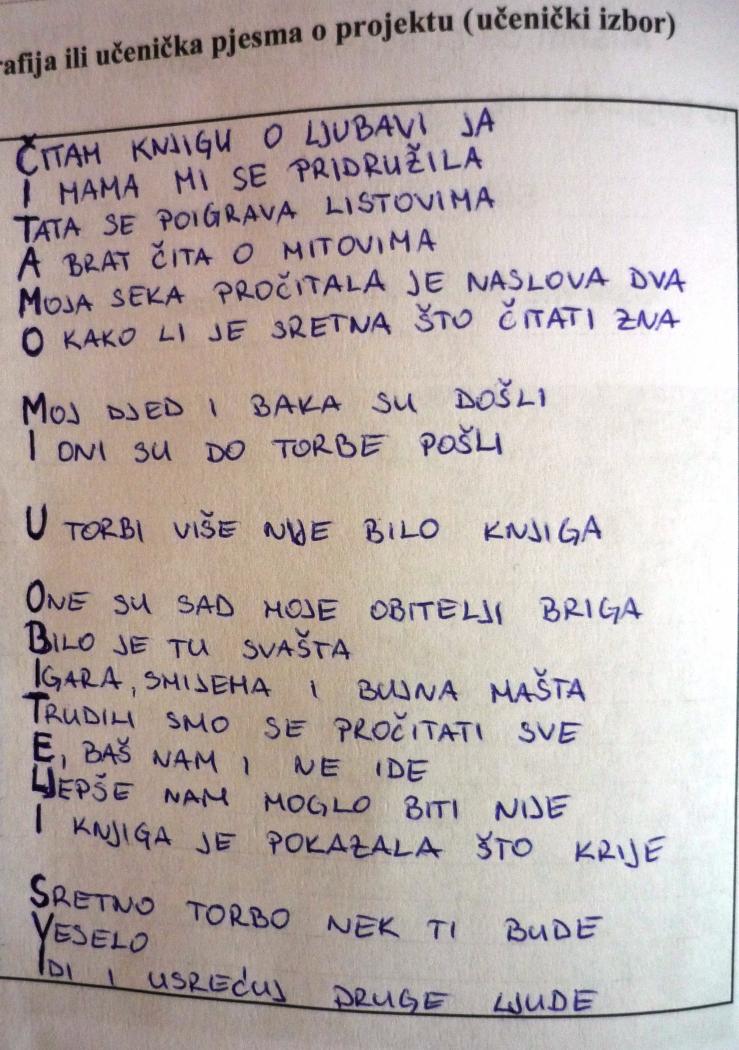 rafija ili učenička pjesma o projektu (učenički izbor)
ČITAM KNJIGU O LJUBAVI JA
I MAMA MI SE PRIDRUŽILA
TATA SE POIGRAVA LISTOVIMA
A BRAT ČITA O MITOVIMA
MOJA SEKA PROČITALA JE NASLOVA DVA
O KAKO LI JE SRETNA ŠTO ČITATI ZNA
MOJ DJED I BAKA SU DOŠLI
I ONI SU DO TORBE POŠLI
U TORBI VIŠE NIJE BILO KNJIGA
ONE SU SAD MOJE OBITELJI BRIGA
BILO JE TU SVAŠTA
IGARA, SMIJEHA I BUJNA MAŠTA
TRUDILI SMO SE PROČITATI SVE
E, BAŠ NAM I NE IDE
LJEPŠE NAM MOGLO BITI NIJE
I KNJIGA JE POKAZALA ŠTO KRIJE
SRETNO TORBO NEK TI BUDE
VESELO
IDI I USREĆUJ DRUGE LJUDE